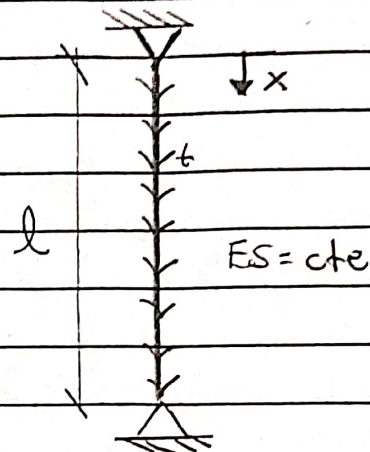 x
t
l
ES = cte